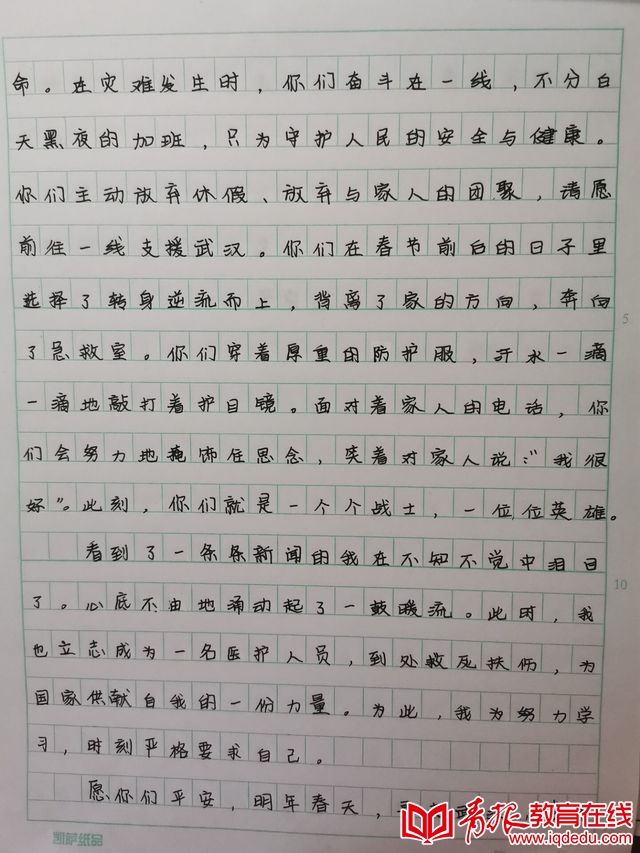 命。在灾难发生时，你们奋斗在一线，不分白
天黑夜的加班，只为守护人民的安全与健康。
你们主动放弃休假、放弃与家人的团聚，请愿
前往一线支援武汉。你们在春节前后的日子里
选择了转身逆流而上，背离了家的方向，奔向
了急救室。你们穿着厚重的防护服，汗水一滴
一滴地敲打着护目镜。面对着家人的电话，你
们会努力地掩饰住思念，笑着对家人说：“我很
好”。此刻，你们就是一个个战士，一位位英雄。
5
看到了一条条新闻的我在不知不觉中泪目
了。心底不由地涌动起了一股暖流。此时，我
也立志成为一名医护人员，到处救死扶伤，为
国家供献自我的一份力量。为此，我为努力学
习，时刻严格要求自己。
10
愿你们平安，明年春天，
凯萨纸品
青报教育在线
www.iqdedu.com